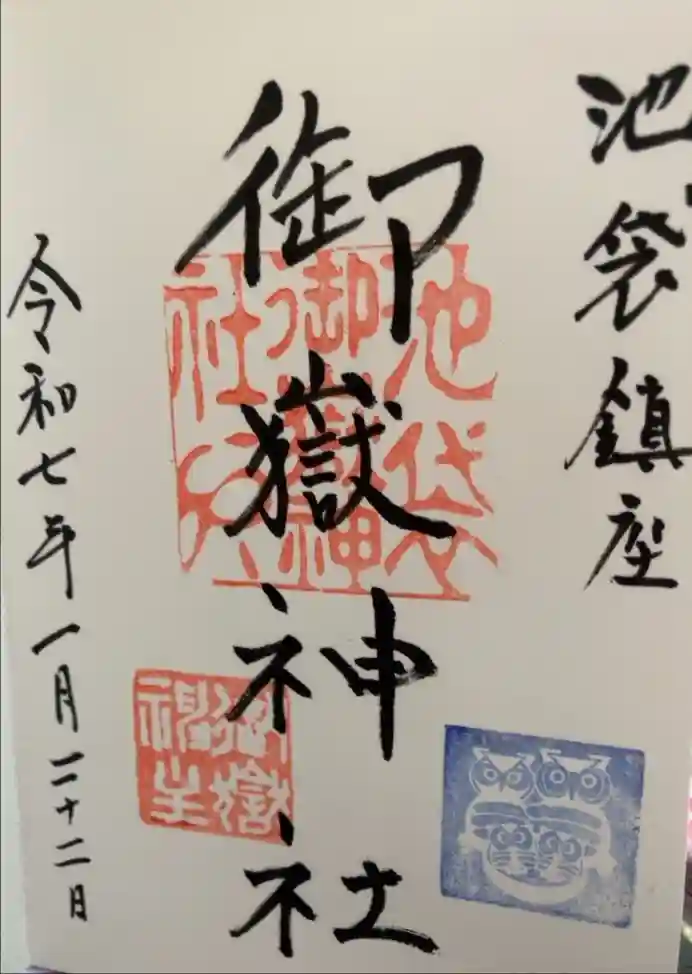 池袋鎮座
御嶽神社
池袋
御嶽神
社
令和七年一月二十二日